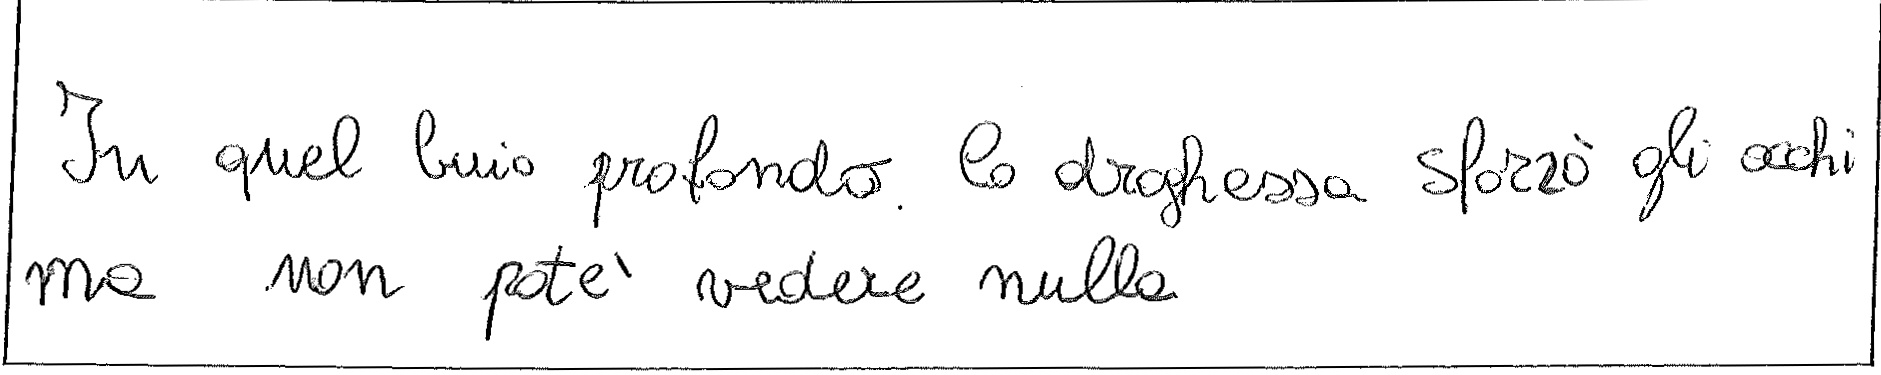 In quel buio profondo. la draghessa sforzò gli occhi
ma non potè vedere nulla